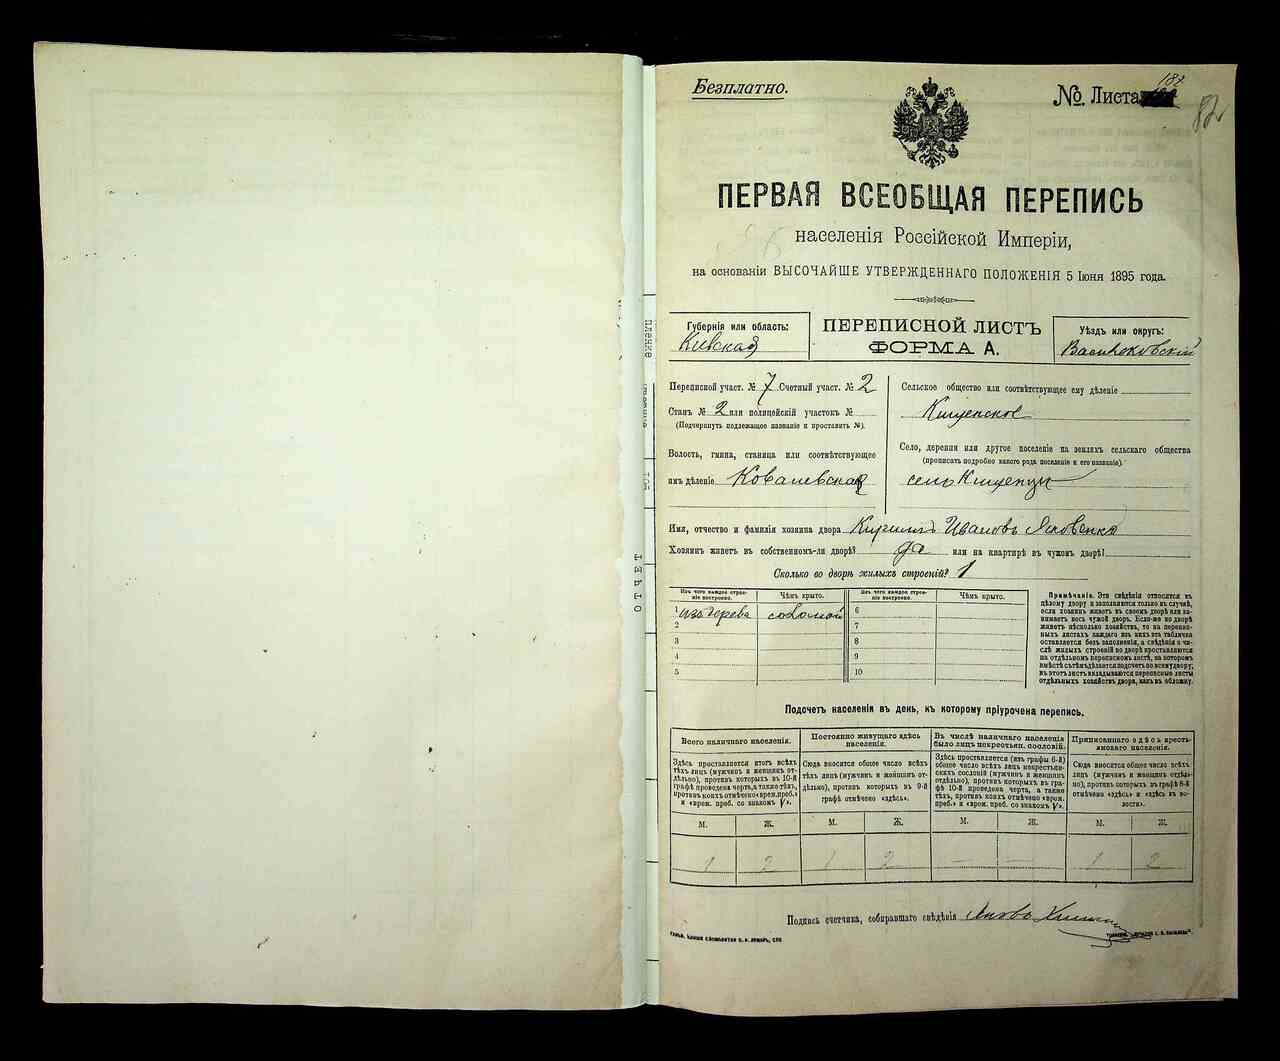 Безплатно.
№ Листа 187
82
ПЕРВАЯ ВСЕОБЩАЯ ПЕРЕПИСЬ
населенія Россійской Имперіи,
на основаніи ВЫСОЧАЙШЕ УТВЕРЖДЕННАГО ПОЛОЖЕНІЯ 5 Іюня 1895 года.
Губернія или область:
Кіевская
ПЕРЕПИСНОЙ ЛИСТЪ
ФОРМА А.
Уѣздъ или округъ:
Васильковскій
Переписной участ. № 7 Счетный участ. № 2
Станъ № 2 или полицейскій участокъ №
(Подчеркнуть подлежащее названіе и проставить №).
Волость, гмина, станица или соотвѣтствующее
имъ дѣленіе Ковалевская
Сельское общество или соотвѣтствующее ему дѣленіе
Кищенское
Село, деревня или другое поселеніе на земляхъ сельскаго общества
(прописать подробно какого рода поселеніе и его названіе).
село Кищенцы
Имя, отчество и фамилія хозяина двора Кириллъ Ивановъ Яковенко
Хозяинъ живетъ въ собственномъ-ли дворѣ? да или на квартирѣ въ чужомъ дворѣ?
Сколько во дворѣ жилыхъ строеній? 1
Изъ чего каждое строеніе построено.
Чѣмъ крыто.
Изъ чего каждое строеніе построено.
Чѣмъ крыто.
1 изъ дерева соломой 6
2 7
3 8
4 9
5 10
Примѣчаніе. Эти свѣдѣнія относятся къ
цѣлому двору и заполняются только въ случаѣ,
если хозяинъ живетъ въ своемъ дворѣ или занимаетъ
весь чужой дворъ. Если-же во дворѣ
живетъ нѣсколько хозяйствъ, то на переписныхъ
листахъ каждаго изъ нихъ эта табличка
оставляется безъ заполненія, а свѣдѣнія о числѣ
жилыхъ строеній во дворѣ проставляются
на отдѣльномъ переписномъ листѣ, на которомъ
вмѣстѣ съ тѣмъ дѣлается подсчетъ по всему двору;
въ этотъ листъ вкладываются переписные листы
отдѣльныхъ хозяйствъ двора, какъ въ обложку.
Подсчетъ населенія въ день, къ которому пріурочена перепись.
Всего наличнаго населенія.
Здѣсь проставляется итогъ всѣхъ
тѣхъ лицъ (мужчинъ и женщинъ отдѣльно),
противъ которыхъ въ 10-й
графѣ проведена черта, а также тѣхъ,
противъ коихъ отмѣчено «врем. преб.»
и «врем. преб. со знакомъ V».
Постоянно живущаго здѣсь
населенія.
Сюда вносится общее число всѣхъ
тѣхъ лицъ (мужчинъ и женщинъ отдѣльно),
противъ которыхъ въ 9-й
графѣ отмѣчено «здѣсь».
Въ числѣ наличнаго населенія
было лицъ некрестьян. сословій.
Здѣсь проставляется (изъ графы 6-й)
общее число всѣхъ лицъ некрестьянскихъ
сословій (мужчинъ и женщинъ
отдѣльно), противъ которыхъ въ графѣ
10-й проведена черта, а также
тѣхъ, противъ коихъ отмѣчено «врем.
преб.» и «врем. преб. со знакомъ V».
Приписаннаго здѣсь крестьянскаго
населенія.
Сюда вносится общее число всѣхъ
лицъ (мужчинъ и женщинъ отдѣльно),
противъ которыхъ въ графѣ 8-й
отмѣчено «здѣсь» и «здѣсь въ волости».
М. Ж. М. Ж. М. Ж. М. Ж.
1 2 1 2 — — 1 2
Подпись счетчика, собиравшаго свѣдѣнія Яковъ